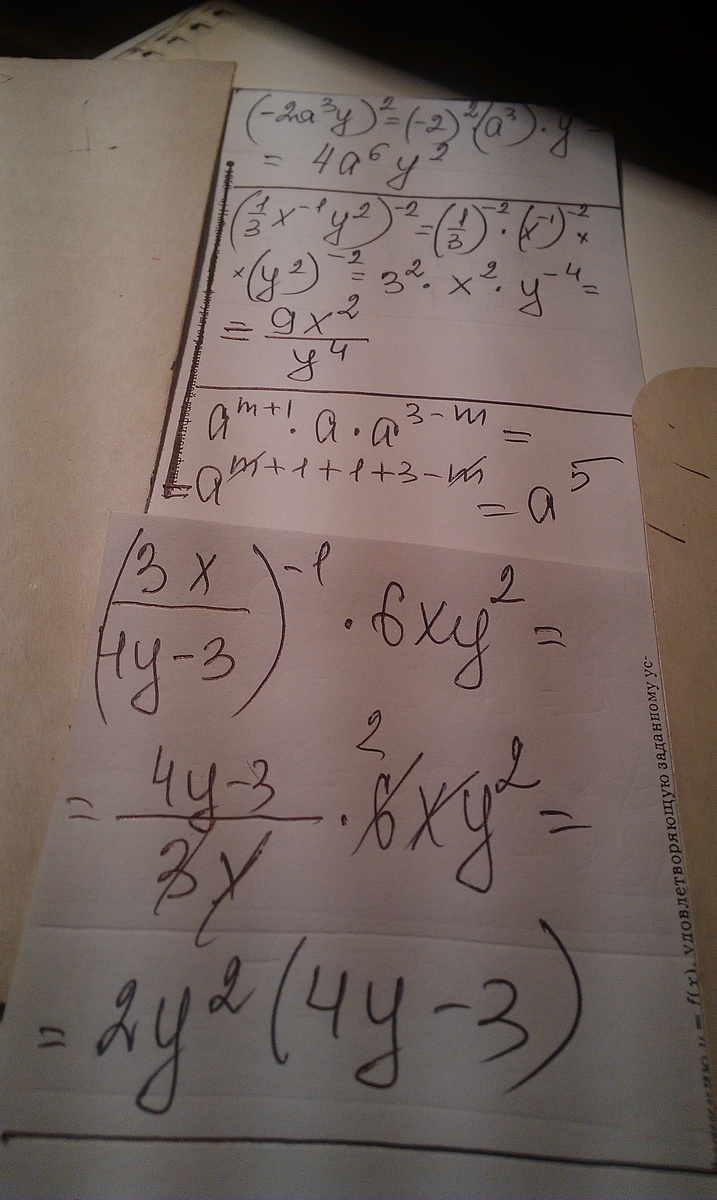 (-2a³y)² = (-2)²·(a³)·y =
= 4a⁶y²
(1/3 x⁻¹y²)⁻² = (1/3)⁻²·(x⁻¹)⁻² ×
×(y²)⁻² = 3²·x²·y⁻⁴ =
= 9x²/y⁴
aᵐ⁺¹·a·a³⁻ᵐ =
= aᵐ⁺¹⁺¹⁺³⁻ᵐ = a⁵
(3x/(4y-3))⁻¹ · 6xy² =
2
= (4y-3)/(3x) · 6xy² =
= 2y²(4y-3)
y = f(x), удовлетворяющую заданному ус-